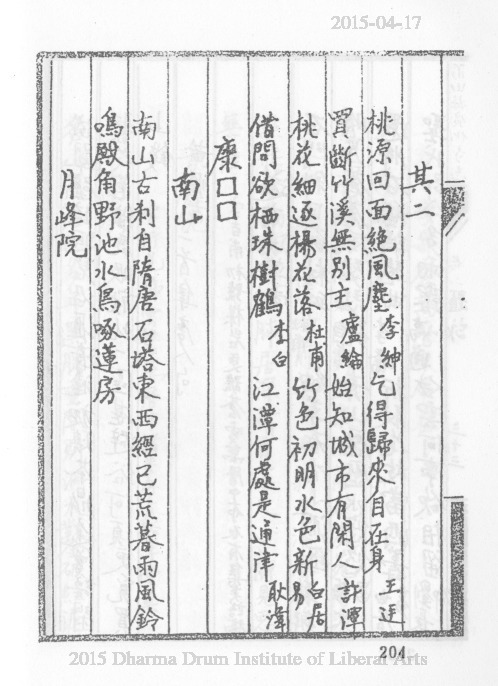 2015-04-17
其二
桃源回面絶風塵 李紳 乞得歸來自在身 王廷
買斷竹溪無別主 盧綸 始知城市有閑人 許渾
桃花細逐楊花落 杜甫 竹色初明水色新 白居易
借問欲栖珠樹鶴 李白 江潭何處是通津 耿湋
康□□
南山
南山古刹自隋唐石塔東西經已荒暮雨風鈴
鳴殿角野池水鳥啄蓮房
月峰院
204
2015 Dharma Drum Institute of Liberal Arts